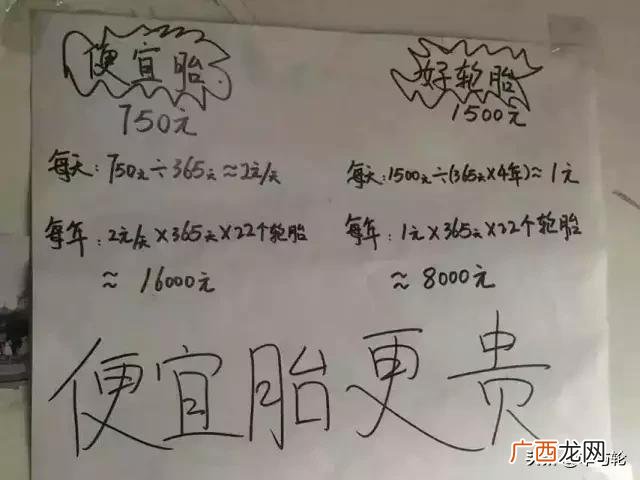 便宜胎
750元
每天:750元÷365天≈2元/天
每年:2元/天×365天×22个轮胎
≈16000元
好轮胎
1500元
每天:1500元÷(365天×4年)≈1元
每年:1元×365天×22个轮胎
≈8000元
便宜胎更贵
广西龙网